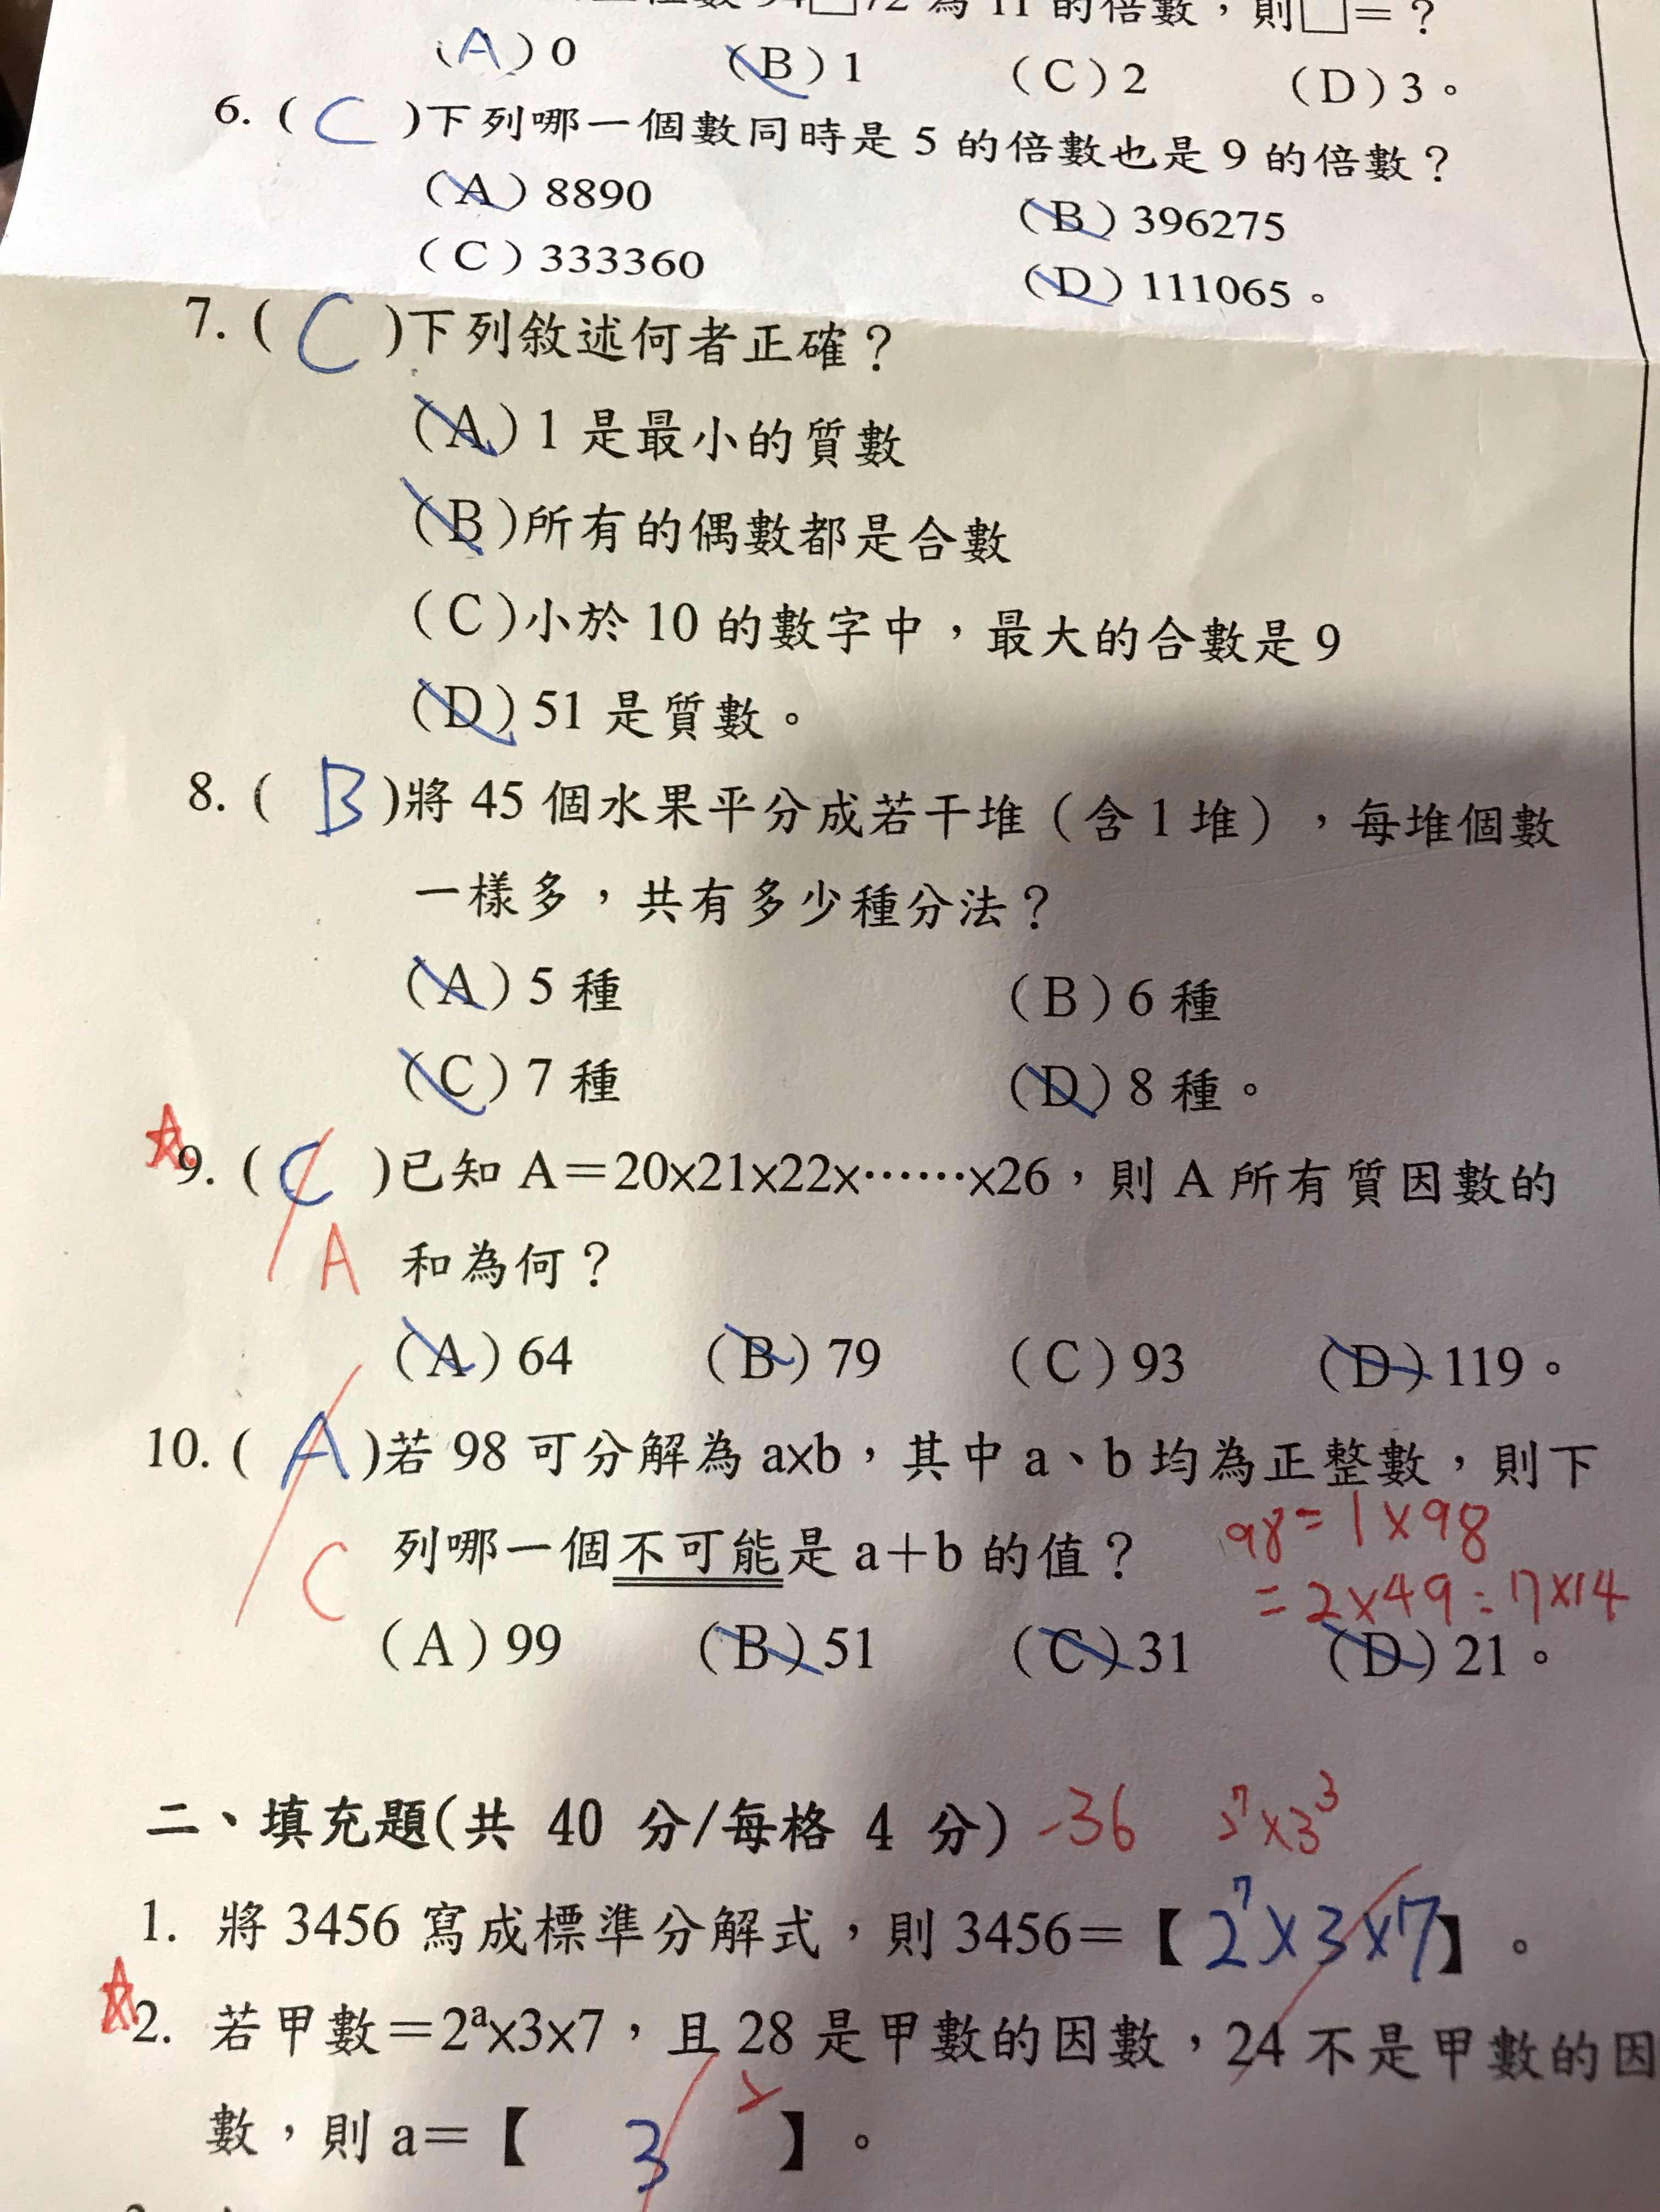 94□72 為 11 的倍數,則□=?
(A)0 (B)1 (C)2 (D)3。
6. ( C )下列哪一個數同時是 5 的倍數也是 9 的倍數?
(A)8890 (B)396275
(C)333360 (D)111065。
7. ( C )下列敘述何者正確?
(A)1 是最小的質數
(B)所有的偶數都是合數
(C)小於 10 的數字中,最大的合數是 9
(D)51 是質數。
8. ( B )將 45 個水果平分成若干堆(含 1 堆),每堆個數
一樣多,共有多少種分法?
(A)5 種 (B)6 種
(C)7 種 (D)8 種。
9. ( C )已知 A=20×21×22×……×26,則 A 所有質因數的
A 和為何?
(A)64 (B)79 (C)93 (D)119。
10. ( A )若 98 可分解為 a×b,其中 a、b 均為正整數,則下
98=1×98
C 列哪一個不可能是 a+b 的值?
=2×49=7×14
(A)99 (B)51 (C)31 (D)21。
二、填充題(共 40 分/每格 4 分) -36 2⁷×3³
1. 將 3456 寫成標準分解式,則 3456=【2⁷×3×7】。
2. 若甲數=2ᵃ×3×7,且 28 是甲數的因數,24 不是甲數的因
數,則 a=【 3 】。